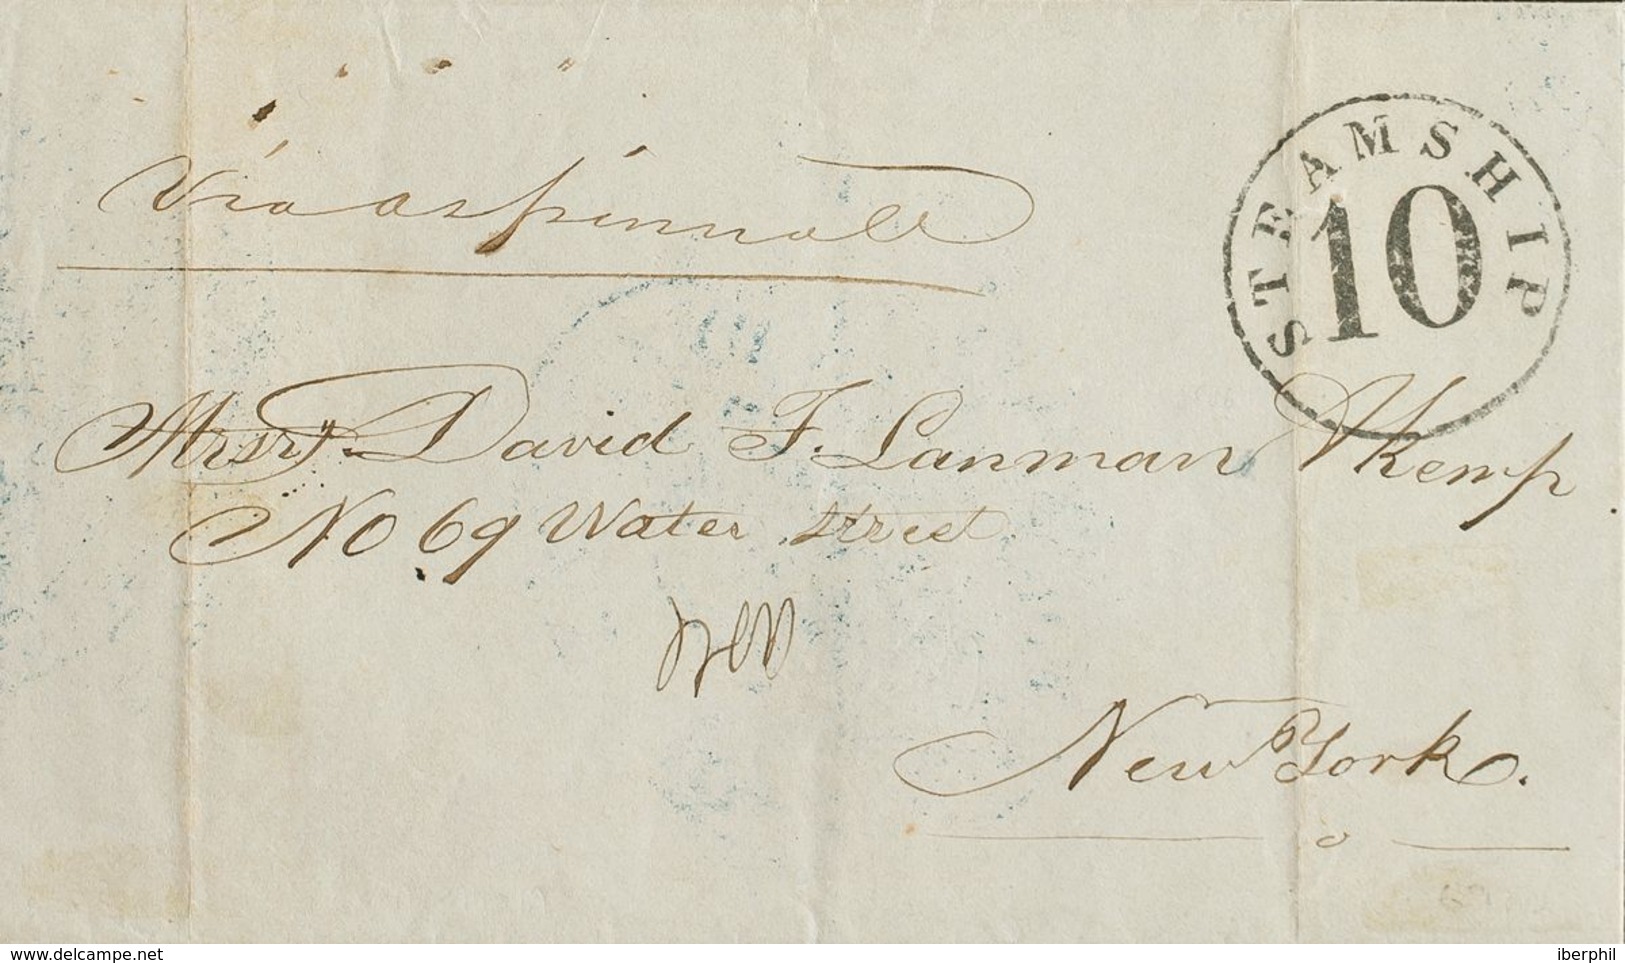 Via aspinnall
STEAMSHIP
10
Messrs. David F. Lanman & Kemp
No 69 Water Street
New York.
www.delcampe.net
iberphil